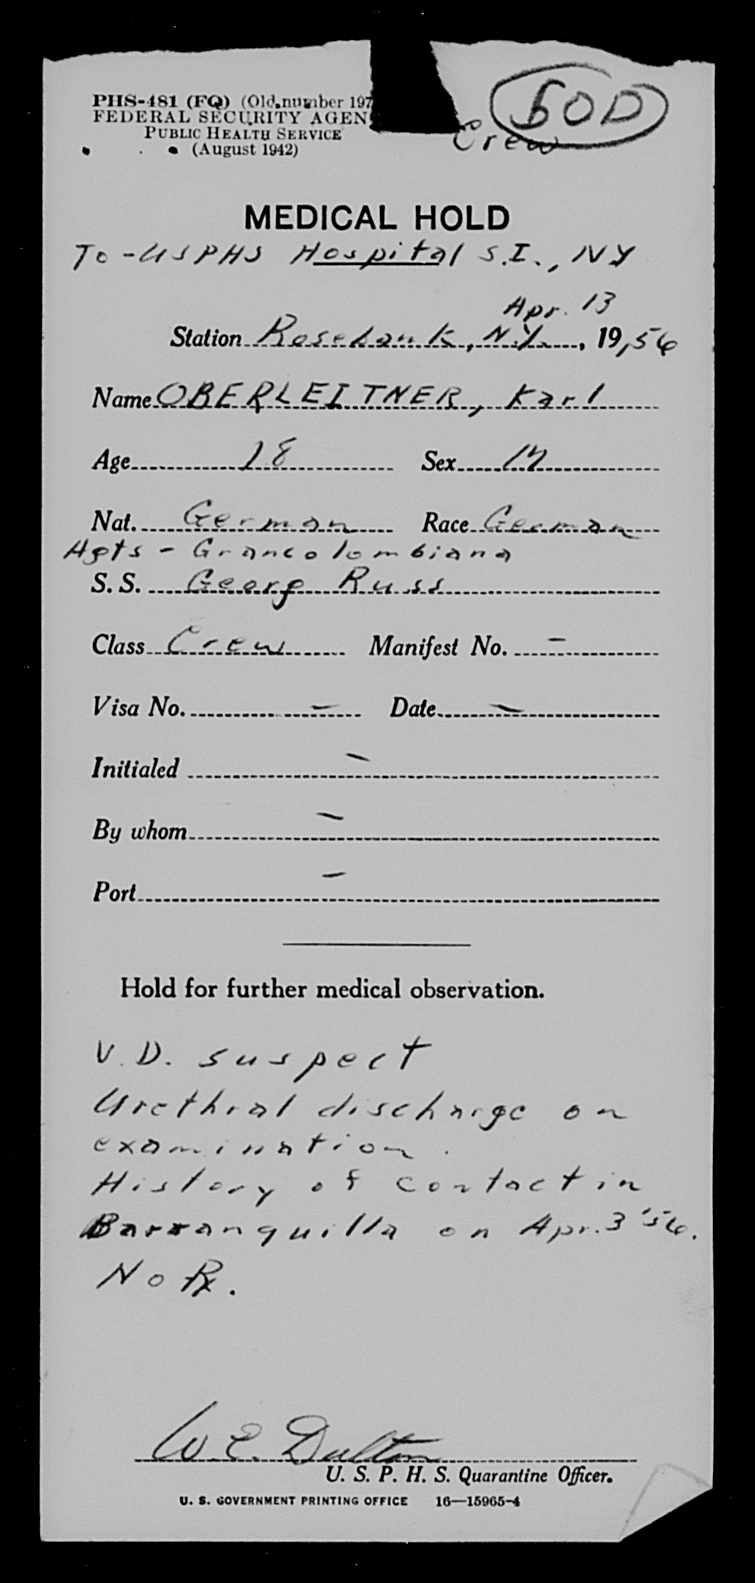 PHS-481 (FQ) (Old number 197
FEDERAL SECURITY AGEN
PUBLIC HEALTH SERVICE
(August 1942)
Crew
MEDICAL HOLD
To - USPHS Hospital S.I., NY
Apr. 13
Station Rosebank, N.Y., 19,56
Name OBERLEITNER, Karl
Age 18 Sex M
Nat. German Race German
Agts - Grancolombiana
S. S. Georg Russ
Class Crew Manifest No. -
Visa No. - Date -
Initialed -
By whom -
Port -
Hold for further medical observation.
V.D. suspect
Urethral discharge on
examination.
History of contact in
Barranquilla on Apr. 3 '56.
No Rx.
W. E. Dalton
U. S. P. H. S. Quarantine Officer.
U. S. GOVERNMENT PRINTING OFFICE 16—15965-4